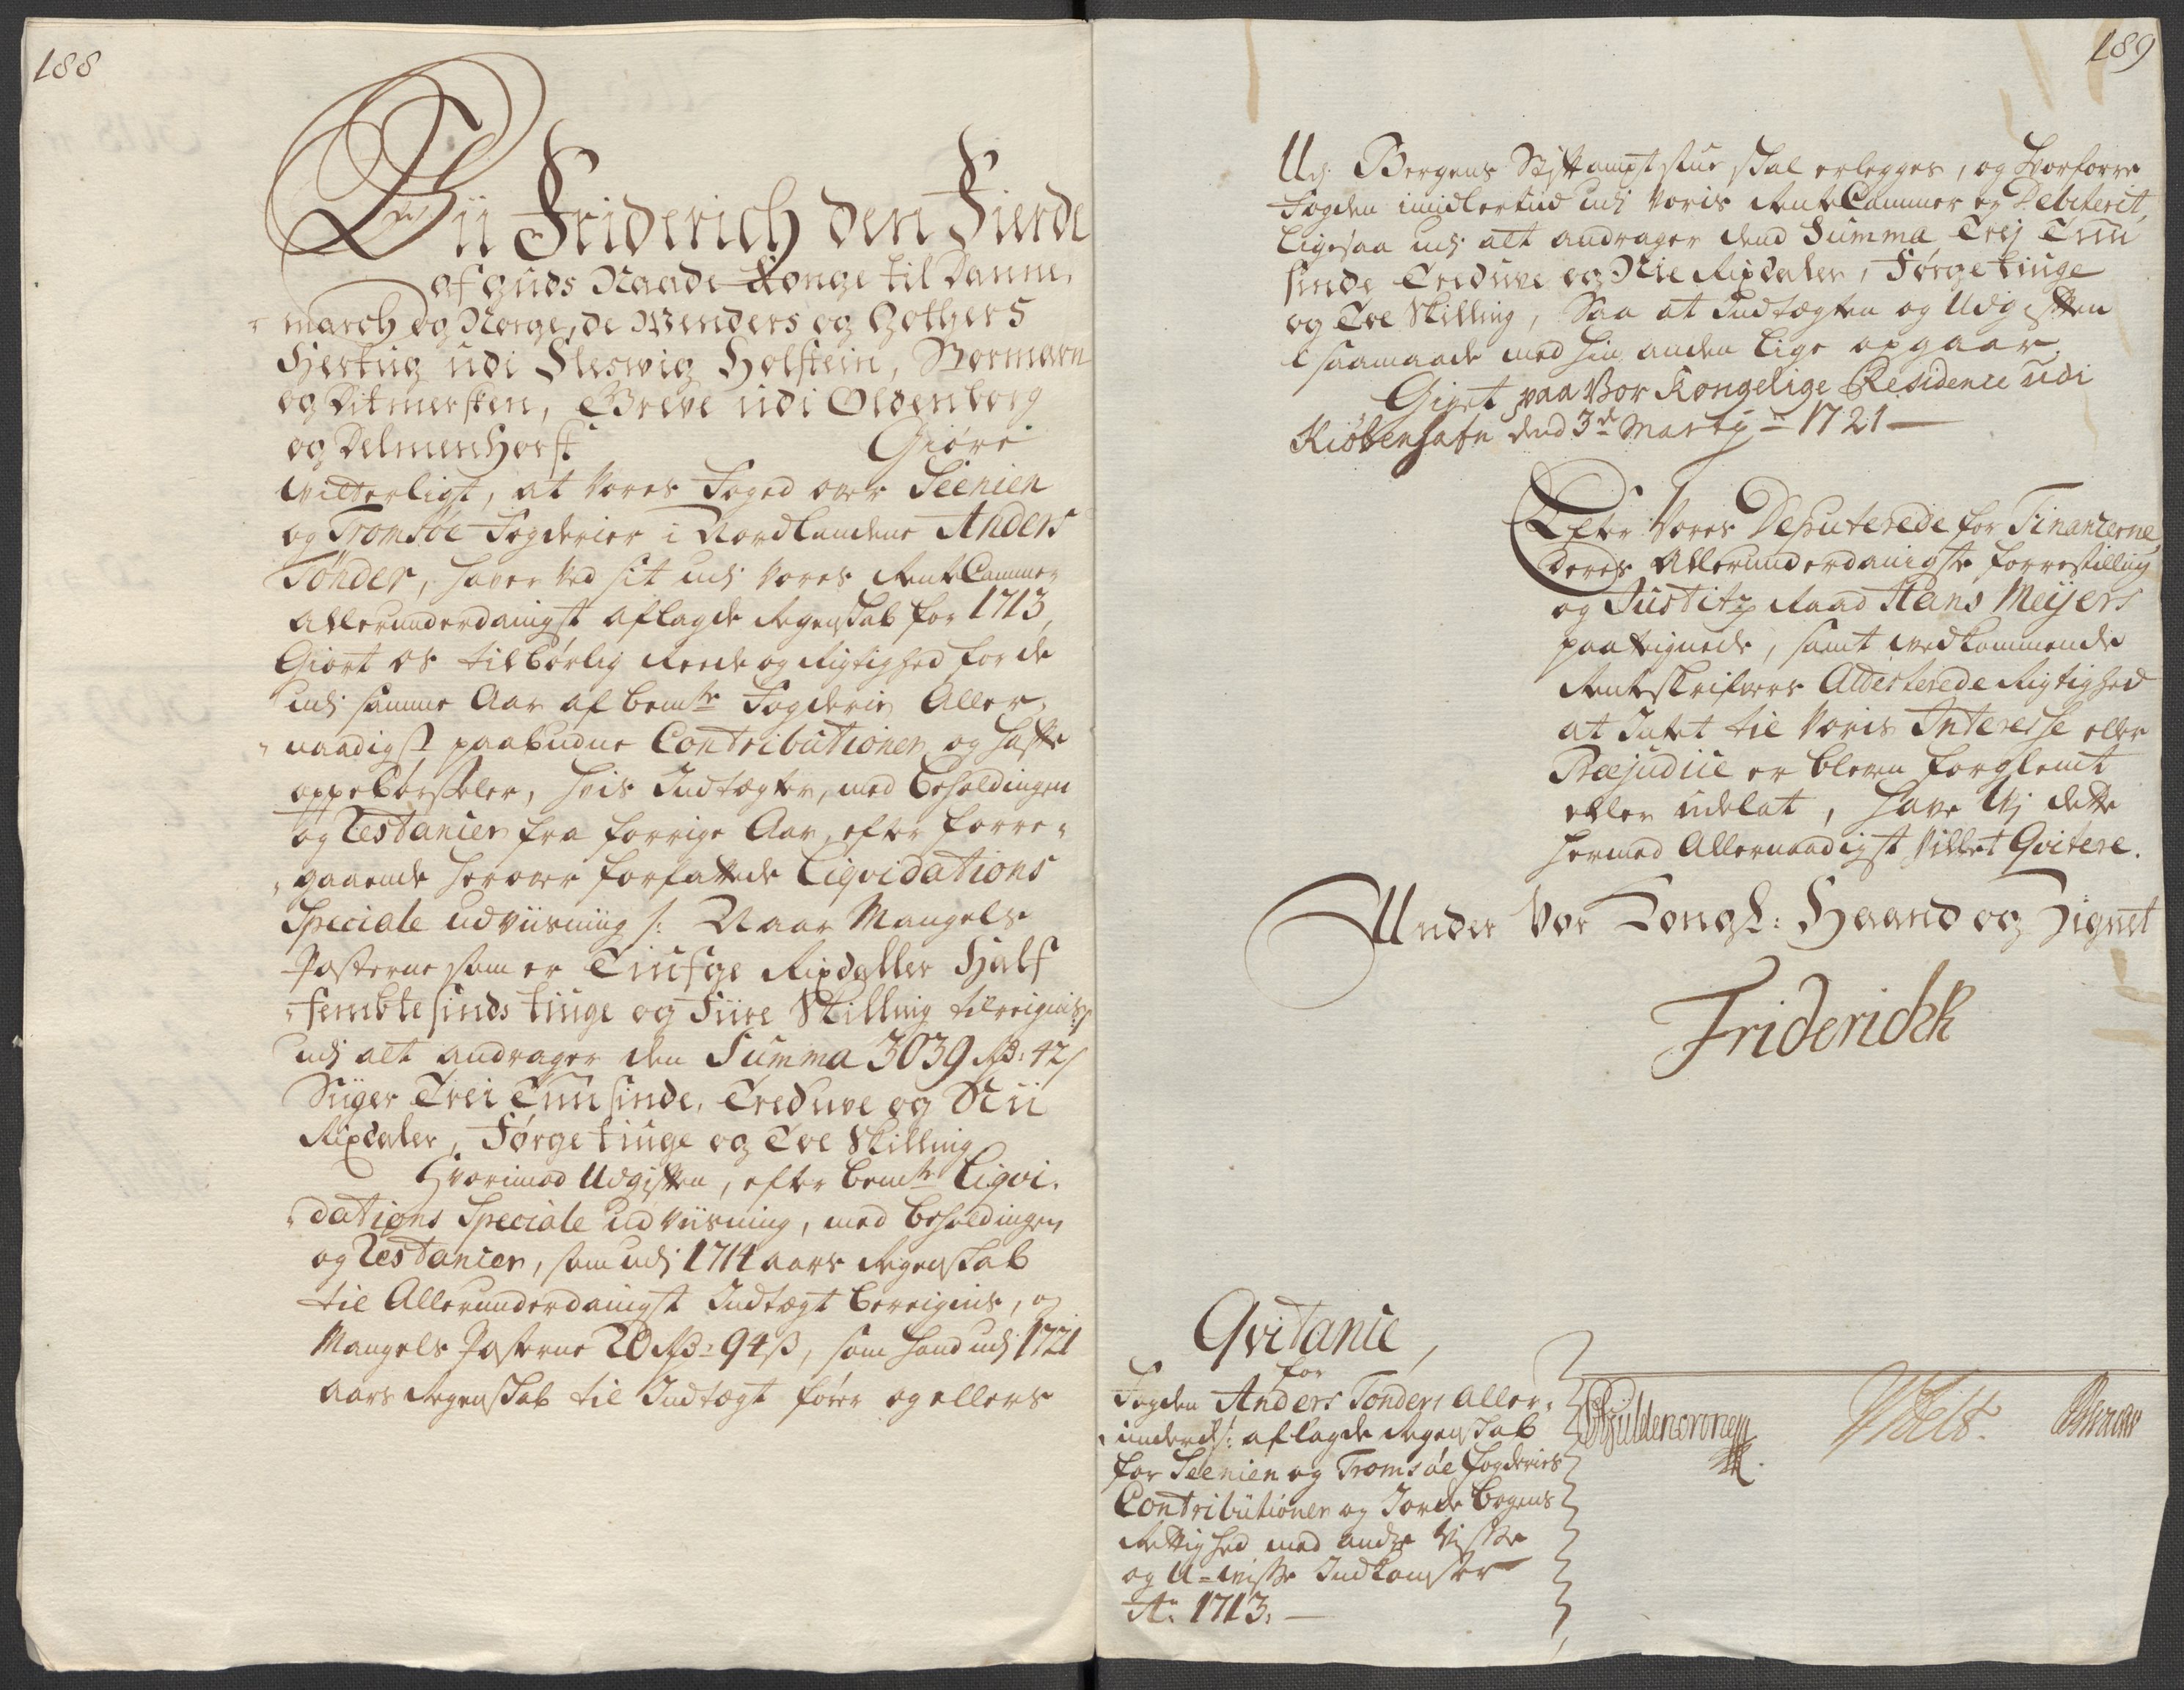 188
Vii Friderich den Fierde
af Guds Naade Konge til Danne,
march og Norge, de Wenders og Gothers
Hertug udi Sleswig Holstein, Stormarn
og Ditmersken, Greve udi Oldenborg
og Delmenhorst Giøre
vitterligt, at Vores Foged over Seenien
og Tromsøe Fogderier i Nordlandene Anders
Tønder, haver ved sit udj Vores RenteCammer
Allerunderdanigst aflagde Regenskab for 1713,
Giort os tilbørlig Reede og Rigtighed for de
udj samme Aar af bemte Fogderie Aller,
naadigst paabudne Contributioner og haffte
oppebørsteler, hvis Indtægter, med Beholdingen
og Restancier fra forrige Aar, efter forre,
gaaende herover forfattede Liqvidations
Speciale udviisning /: Naar Mangels
Posterne som er Tiufge Rixdaller Half
femtesinds tiuge og Fiire Skilling tilreignis :/
udj alt andrager den Summa 3039 Rd: 42 s
Siiger Trei Tuusinde, Tredive og Nii
Rixdaler, Førgetiuge og Toe Skilling
Hvorimod Udgiften, efter bemte Liqvi,
dations Speciale udviisning, med beholdingen
og Restancier, som udj 1714 aars Regenskab
til Allerunderdanigst Indtægt bereignis, og
Mangels Posterne 20 Rd: 94 s, som hand udj 1721
aars Regenskab til Indtægt fører og ellers
189
Udj Bergens Stiftamptstue skal erlegges, og hvorforre
Fogden imidlertiid udj Voris RenteCammer er Debiterit,
Ligesaa udj alt andrager dend Summa Trej Tuu
sinde Tredive og Nie Rixdaler, Førgetiuge
og Toe Skilling, Saa at Indtægten og Udgiften
i saamaade med hin anden lige opgaar.
Givet paa Vor Kongelige Residence udi
Kiøbenhafn dend 3de Martij 1721
Efter Vores Deputerede for Financerne
deres Allerunderdanigste forrestilling
og Justitz Raad Hans Meijers
paategnede, samt vedkommende
Rentskrifvers Attesterede Rigtighed
at Intet til Voris Interesse eller
Præjudice er bleven forglemt
eller udelat, have Vj dette
hermed Allernaadigst Villet Qvitere.
Under Vor Kongl: Haand og Zignet
Friderich R
Qvitancie,
for
Fogden Anders Tonders Aller,
underd: aflagde Regenskab
for Seenien og Tromsøe Fogderies
Contributioner og Jordebogens
Rettighed med andre Visse
og U-visse Indkomster
Ao: 1713.